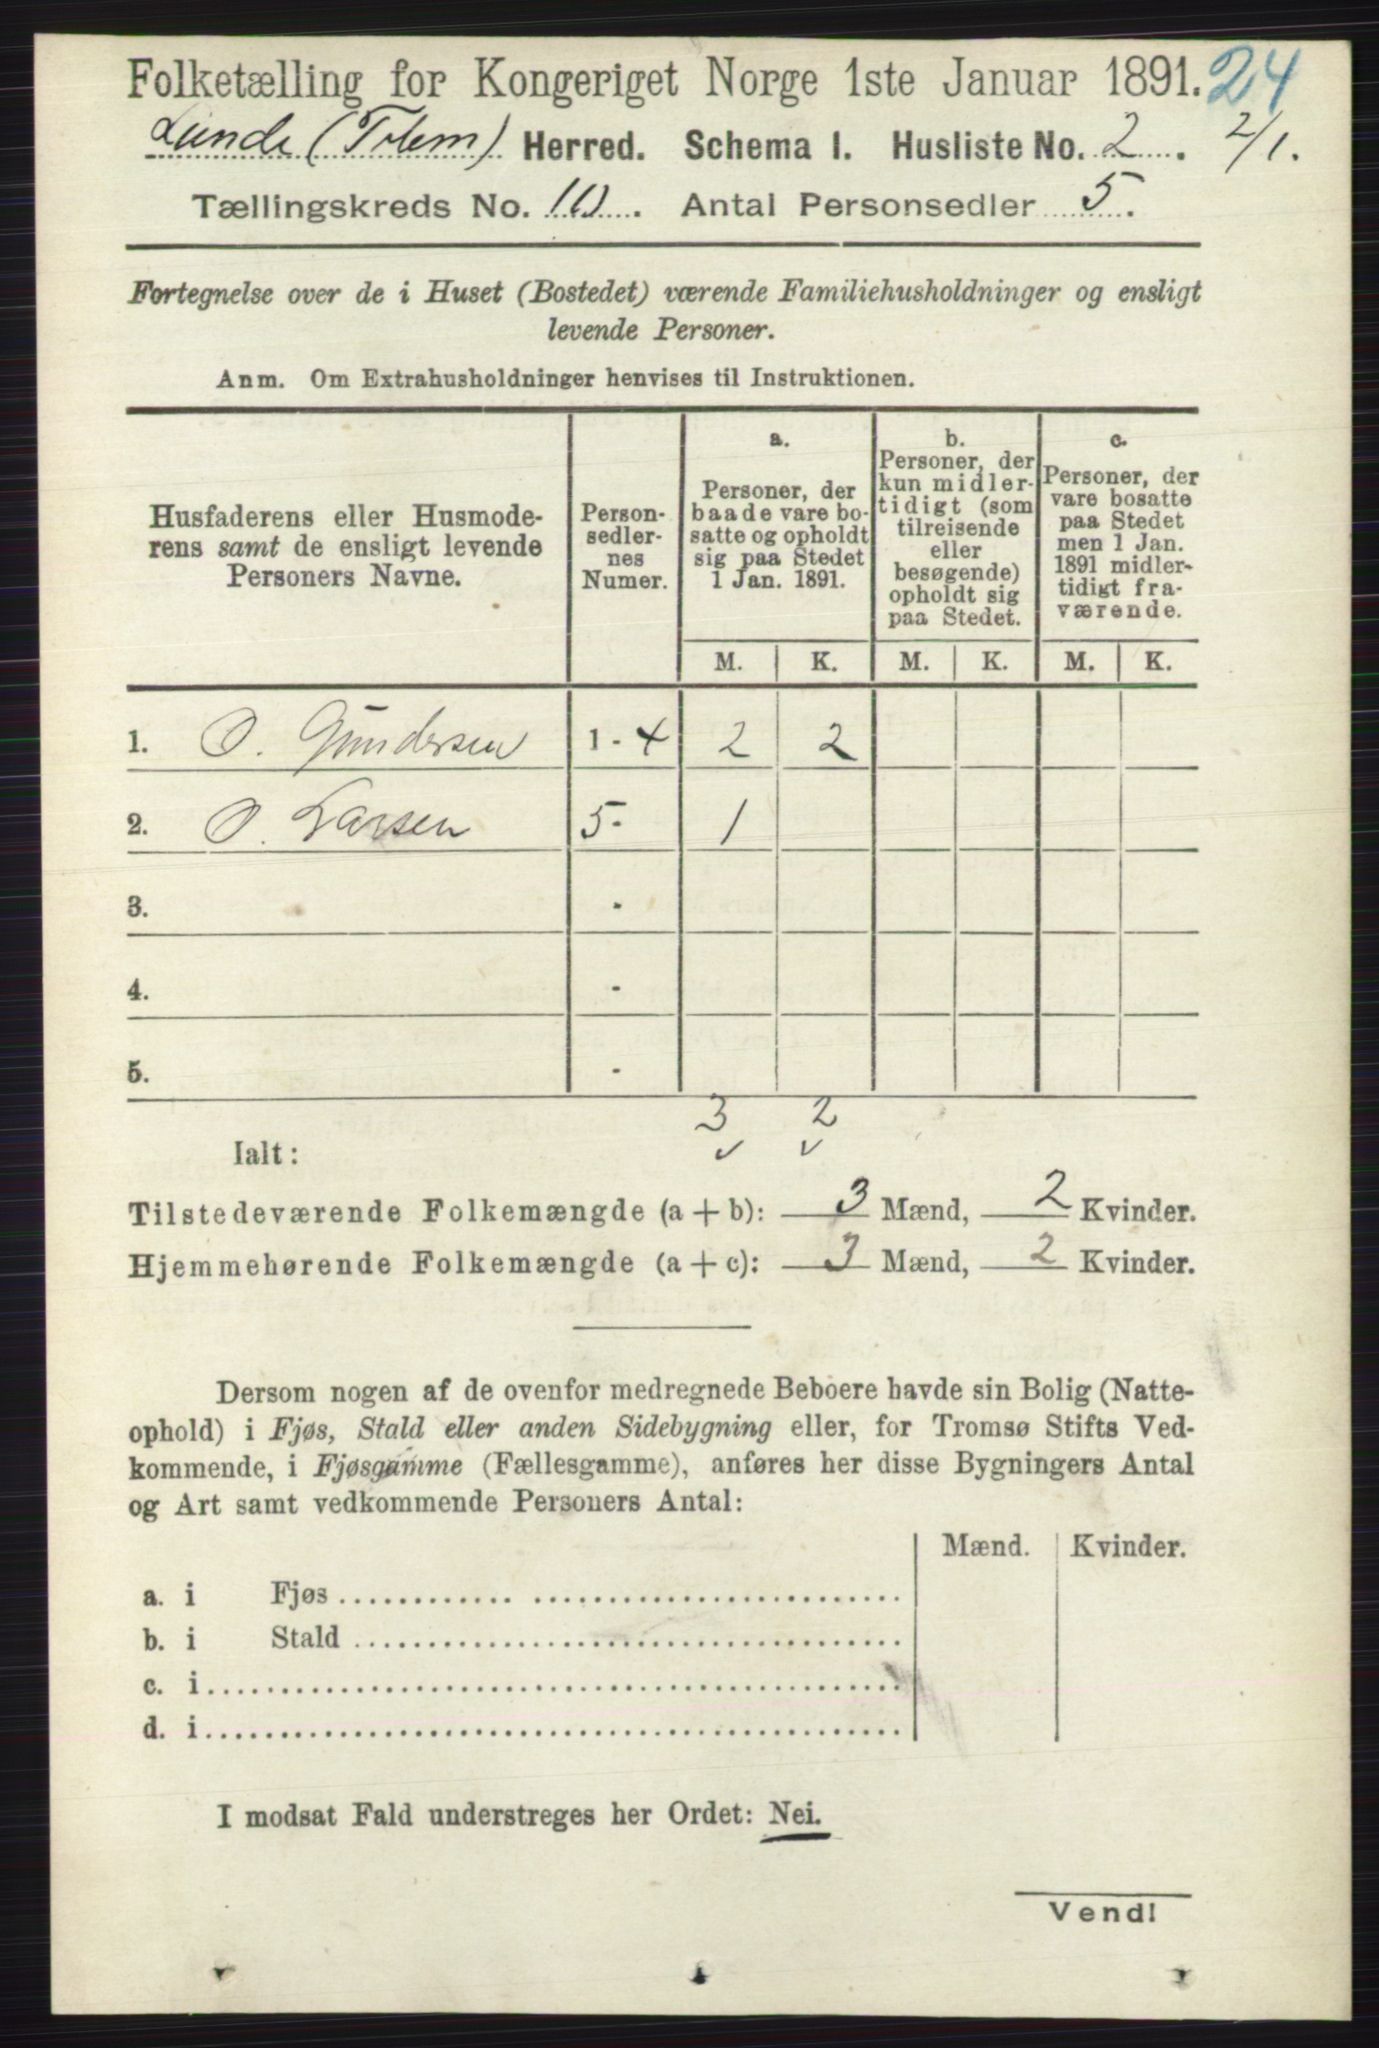 Folketælling for Kongeriget Norge 1ste Januar 1891. 24
Lunde (Telem) Herred. Schema I. Husliste No. 2. 2/1.
Tællingskreds No. 10. Antal Personsedler 5.
Fortegnelse over de i Huset (Bostedet) værende Familiehusholdninger og ensligt
levende Personer.
Anm. Om Extrahusholdninger henvises til Instruktionen.
Husfaderens eller Husmode-
rens samt de ensligt levende
Personers Navne.
Person-
sedler-
nes
Numer.
a.
Personer, der
baade vare bo-
satte og opholdt
sig paa Stedet
1 Jan. 1891.
b.
Personer, der
kun midler-
tidigt (som
tilreisende
eller
besøgende)
opholdt sig
paa Stedet.
c.
Personer, der
vare bosatte
paa Stedet
men 1 Jan.
1891 midler-
tidigt fra-
værende.
M. K. M. K. M. K.
1. O. Gundersen 1 - 4 2 2
2. O. Larsen 5 - 1
3. -
4. -
5. -
3 2
Ialt:
Tilstedeværende Folkemængde (a + b): 3 Mænd, 2 Kvinder.
Hjemmehørende Folkemængde (a + c): 3 Mænd, 2 Kvinder.
Dersom nogen af de ovenfor medregnede Beboere havde sin Bolig (Natte-
ophold) i Fjøs, Stald eller anden Sidebygning eller, for Tromsø Stifts Ved-
kommende, i Fjøsgamme (Fællesgamme), anføres her disse Bygningers Antal
og Art samt vedkommende Personers Antal:
Mænd. Kvinder.
a. i Fjøs
b. i Stald
c. i
d. i
I modsat Fald understreges her Ordet: Nei.
Vend!